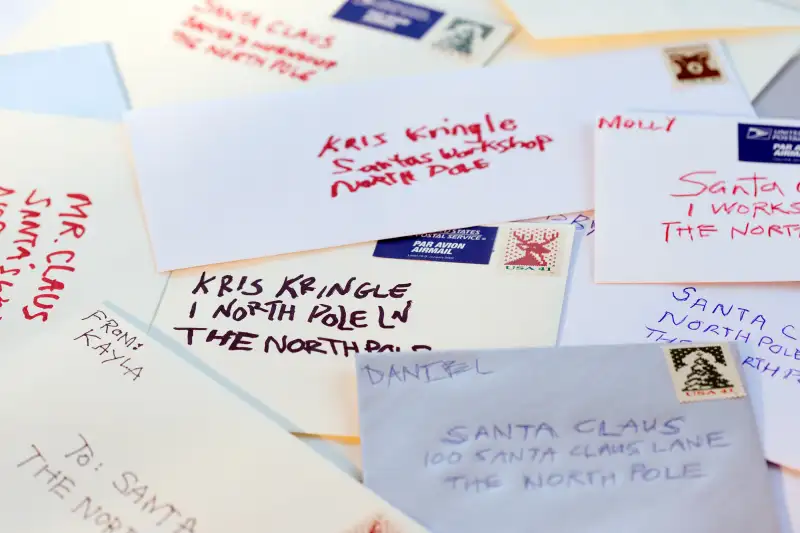 SANTA CLAUS
SANTA'S WORKSHOP
THE NORTH POLE
KRIS Kringle
Santas Workshop
NORTH POLE
MOLLY
UNITED
POSTAL
PAR AVION
AIRMAIL
Santa
1 WORKS
THE NORTH
MR. CLAUS
SANTA'S
STATES
POSTAL SERVICE
PAR AVION
AIRMAIL
USA 41
KRIS KRINGLE
1 NORTH POLE LN
THE NORTH POLE
SANTA C
NORTH POLE
THE NORTH P
FROM:
KAYLA
TO: SANTA
THE NORTH
DANIEL
USA 41
SANTA CLAUS
100 SANTA CLAUS LANE
THE NORTH POLE